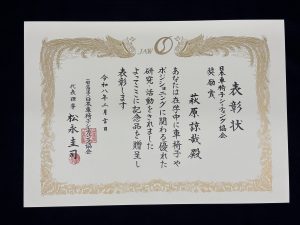 JAW
表彰状
日本車椅子シーティング協会
奨励賞
萩原諒哉殿
あなたは在学中に車椅子や
ポジショニングに関わる優れた
研究・活動をされました
よってここに記念品を贈呈し
表彰します
令和八年三月吉日
一般社団法人日本車椅子シーティング協会
代表理事 松永圭司